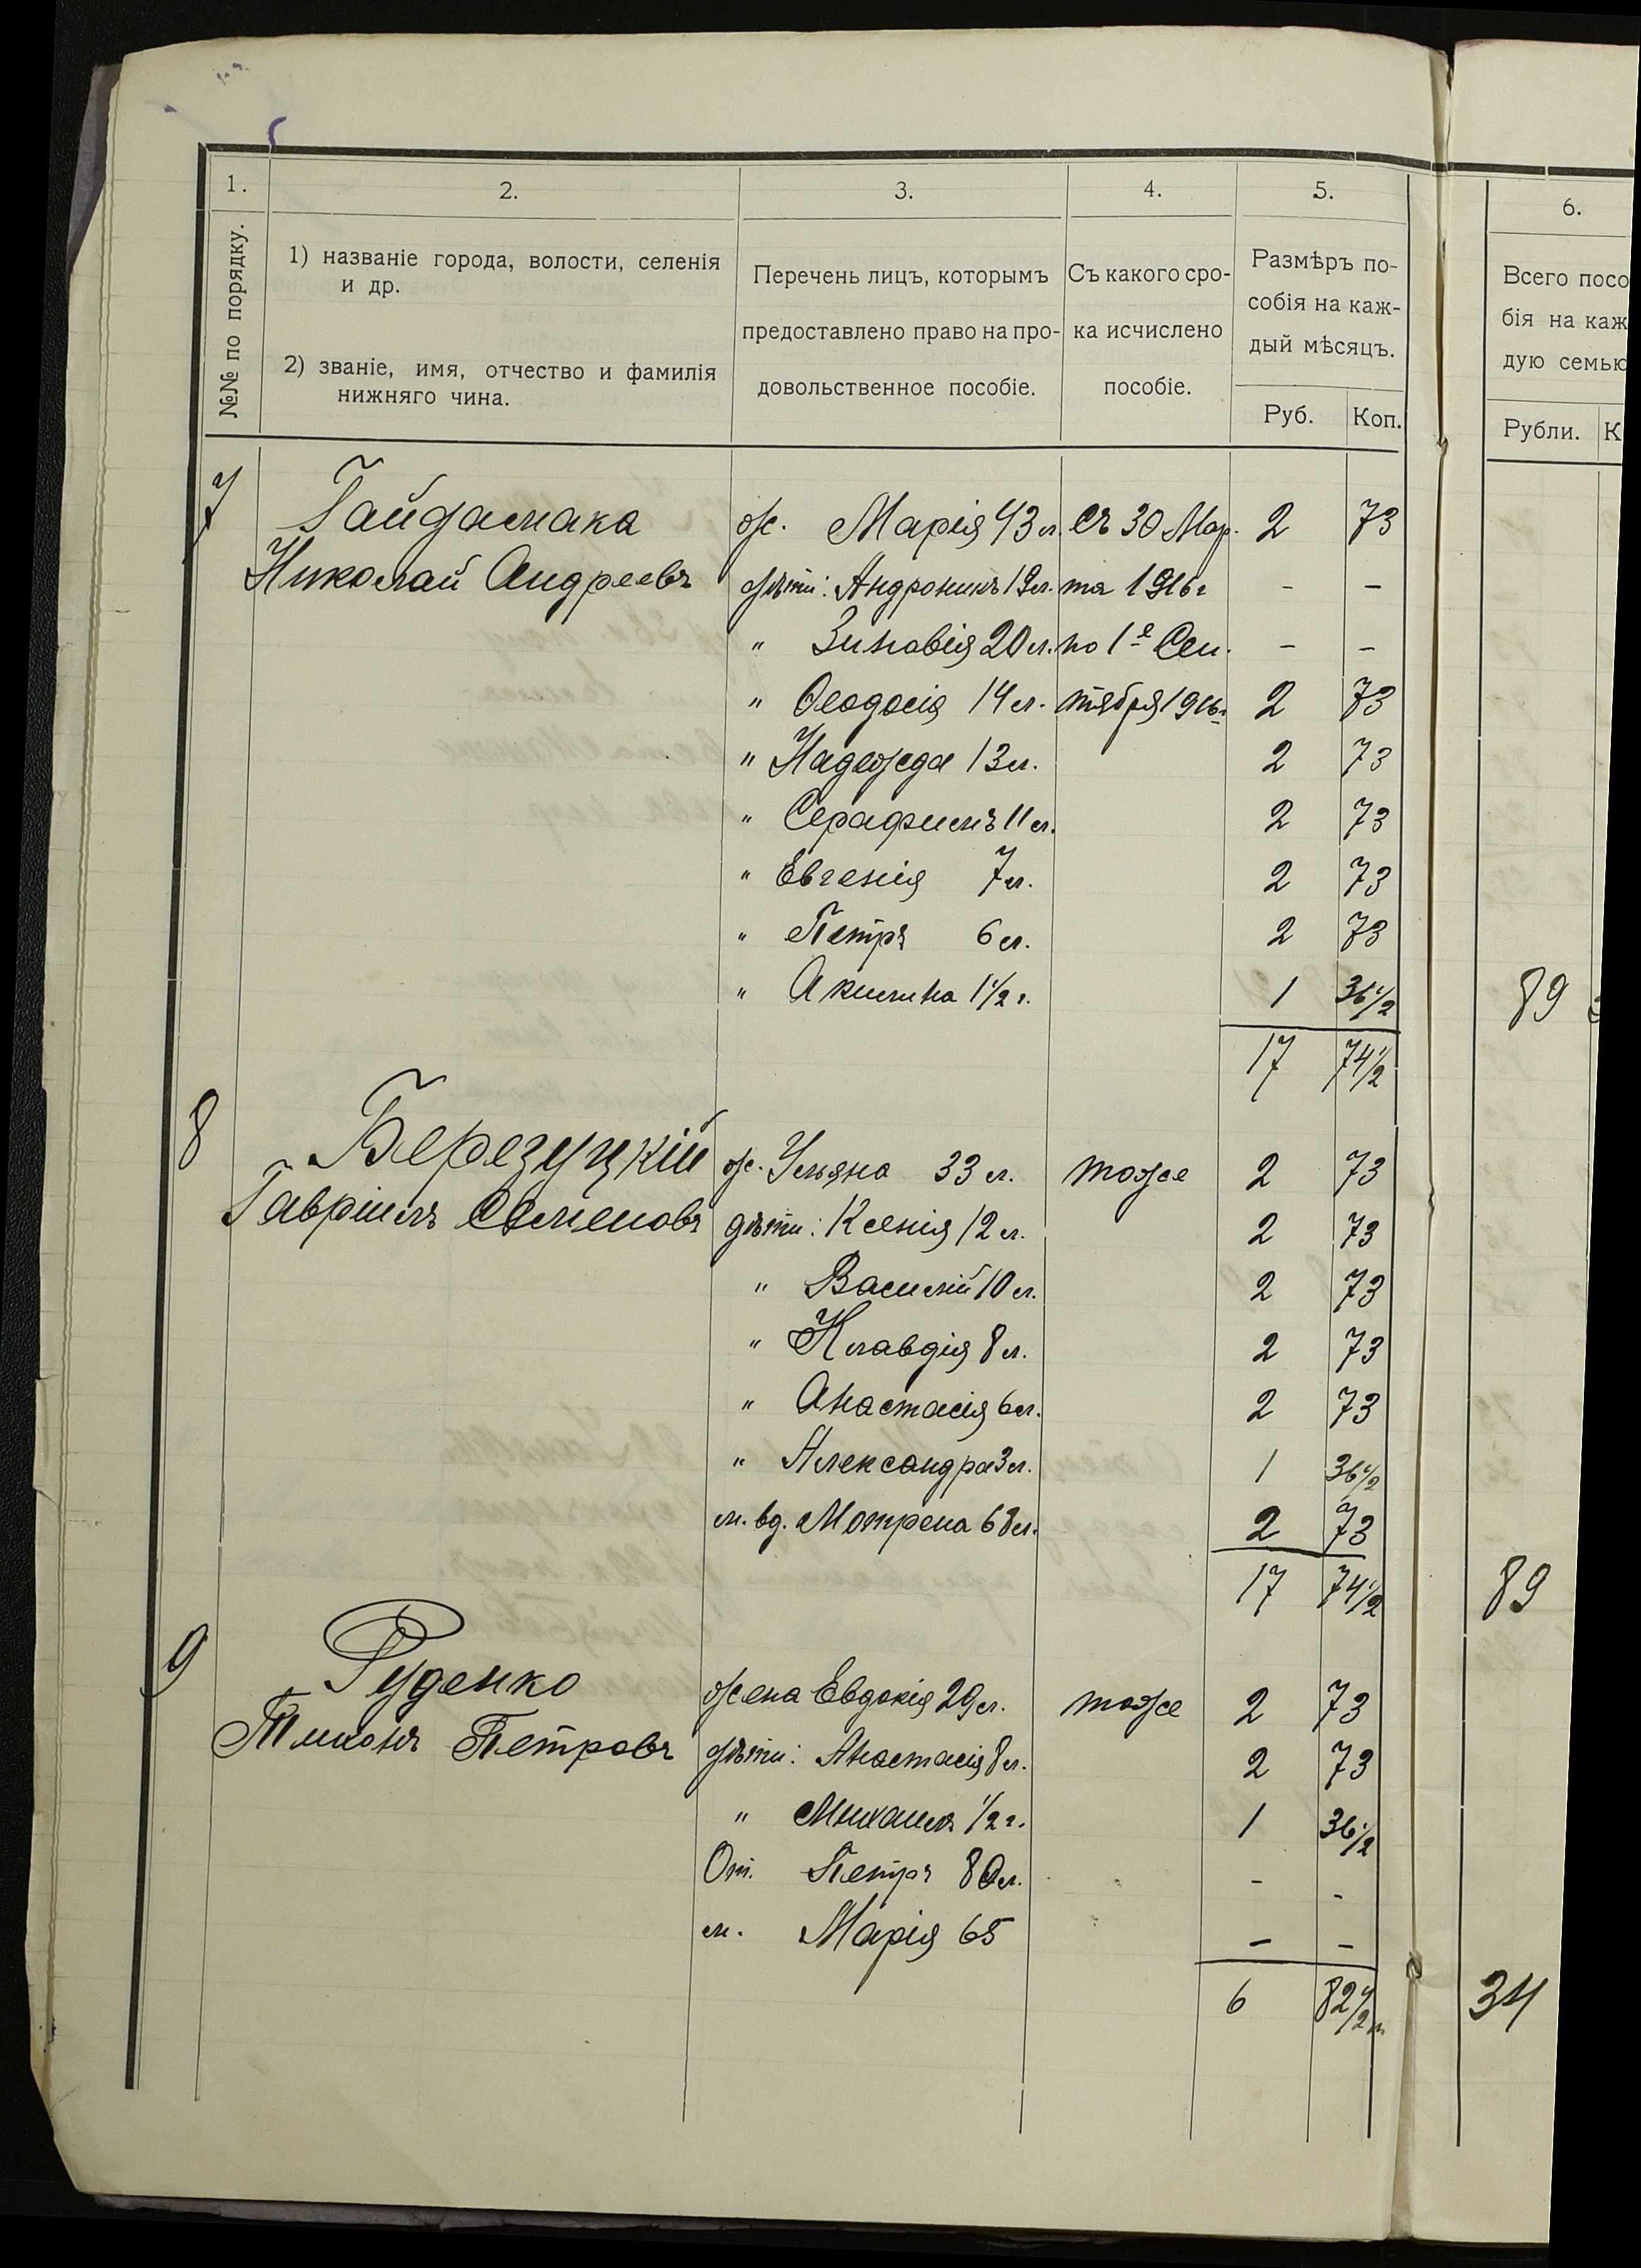 1. 2. 3. 4. 5. 6.
№№ по порядку.
1) названіе города, волости, селенія
и др.
2) званіе, имя, отчество и фамилія
нижняго чина.
Перечень лицъ, которымъ
предоставлено право на про-
довольственное пособіе.
Съ какого сро-
ка исчислено
пособіе.
Размѣръ по-
собія на каж-
дый мѣсяцъ.
Руб. Коп.
Всего посо
бія на каж
дую семью
Рубли. К
7 Гайдамака ж. Марія 43 л. Съ 30 Мар- 2 73
Николай Андреевъ дѣти: Андроникъ 19л. та 1916г - -
" Зиновія 20 л. по 1е Сен- - -
" Ѳеодосія 14 л. тября 1916г 2 73
" Надежда 13 л. 2 73
" Серафимъ 11 л. 2 73
" Евгенія 7 л. 2 73
" Петръ 6 л. 2 73
" Акилина 1 1/2 г. 1 36 1/2 89
17 74 1/2
8 Березуцкій ж. Ульяна 33 л. тоже 2 73
Гавріилъ Семеновъ дѣти: Ксенія 12 л. 2 73
" Василій 10 л. 2 73
" Клавдія 8 л. 2 73
" Анастасія 6 л. 2 73
" Александра 3 л. 1 36 1/2
м. вд. Мотрена 68 л. 2 73
17 74 1/2 89
9 Руденко жена Евдокія 29 л. тоже 2 73
Тихонъ Петровъ дѣти: Анастасія 8 л. 2 73
" Михаилъ 1/2 г. 1 36 1/2
От. Петръ 80 л. - -
м. Марія 65 - -
6 82 1/2 34